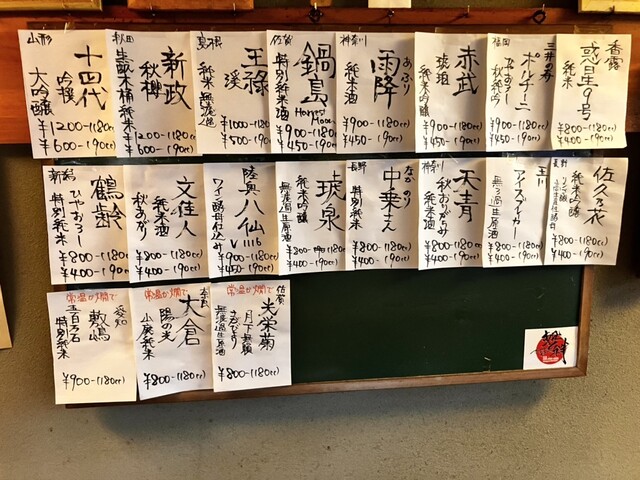 山形
十四代
吟撰
大吟醸
¥1200-(180cc)
¥600-(90cc)
秋田
新政
秋櫻
生酛木桶純米
¥1200-(180cc)
¥600-(90cc)
島根
王祿
渓
純米
¥1000-(180cc)
¥500-(90cc)
佐賀
鍋島
Harvest Moon
特別純米酒
¥900-(180cc)
¥450-(90cc)
神奈川
あふり
雨降
純米酒
¥900-(180cc)
¥450-(90cc)
赤武
琥珀
純米吟醸
¥900-(180cc)
¥450-(90cc)
福岡
三井の寿
ポルチーニ
ひやおろし
秋純吟
¥900-(180cc)
¥450-(90cc)
香露
惑星9号
純米
¥800-(180cc)
¥400-(90cc)
新潟
鶴齢
ひやおろし
特別純米
¥800-(180cc)
¥400-(90cc)
文佳人
純米酒
秋あがり
¥800-(180cc)
¥400-(90cc)
陸奥八仙
V1116
ワイン酵母仕込み
¥900-(180cc)
¥450-(90cc)
琥泉
純米吟醸
無濾過生原酒
¥800-(180cc)
¥400-(90cc)
長野
なかのり
中乗さん
特別純米
¥800-(180cc)
¥400-(90cc)
神奈川
天青
秋おりがらみ
純米酒
¥800-(180cc)
¥400-(90cc)
玉川
アイスブレーカー
無ろ過生原酒
¥800-(180cc)
¥400-(90cc)
長野
佐久乃花
純米吟醸
¥800-(180cc)
¥400-(90cc)
常温か燗で
愛知
敷嶋
五百万石
特別純米
¥900-(180cc)
常温か燗で
奈良
大倉
陽の光
山廃純米
¥800-(180cc)
常温か燗で
佐賀
光栄菊
月下無頼
無濾過生原酒
¥800-(180cc)